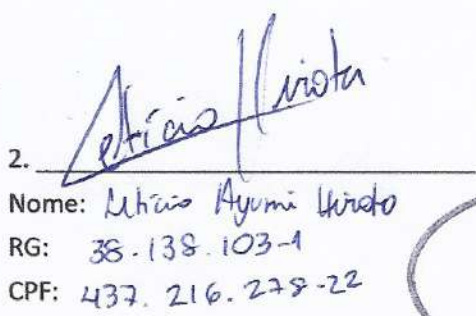 Letícia Hirota
2.
Nome: Letícia Ayumi Hirota
RG: 38.138.103-1
CPF: 437.216.278-22